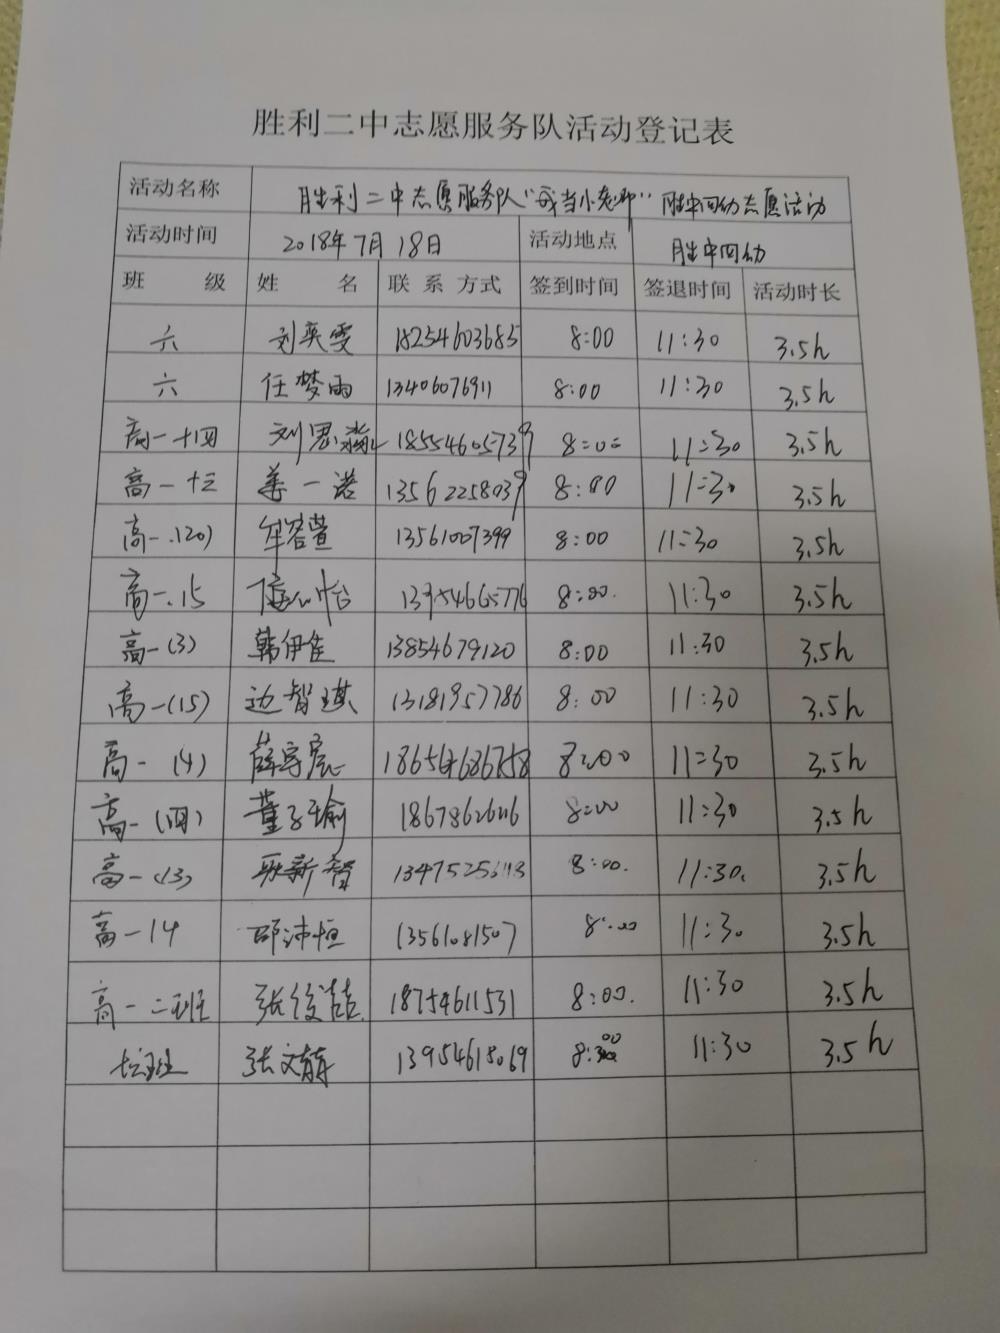 胜利二中志愿服务队活动登记表
活动名称 胜利二中志愿服务队"我当小老师"胜中四幼志愿活动
活动时间 2018年7月18日 活动地点 胜中四幼
班 级 姓 名 联系方式 签到时间 签退时间 活动时长
六 刘奕雯 18254603685 8:00 11:30 3.5h
六 任梦雨 13406076911 8:00 11:30 3.5h
高一十四 刘思 18554605739 8:00 11:30 3.5h
高一十三 姜一诺 13562258039 8:00 11:30 3.5h
高一.(20) 牟容萱 13561007399 8:00 11:30 3.5h
高一.15 13954665776 8:00. 11:30 3.5h
高一(3) 韩伊佳 13854679120 8:00 11:30 3.5h
高一(15) 边智琪 13181957786 8:00 11:30 3.5h
高一(4) 薛宇宸 8:00 11:30 3.5h
高一(四) 董子瑜 8:00 11:30 3.5h
高一(13) 耿新智 8:00. 11:30. 3.5h
高一14 邵沛恒 13561081507 8:00 11:30 3.5h
高一二班 张 18754611531 8:00. 11:30 3.5h
张文 13954618069 8:00 11:30 3.5h